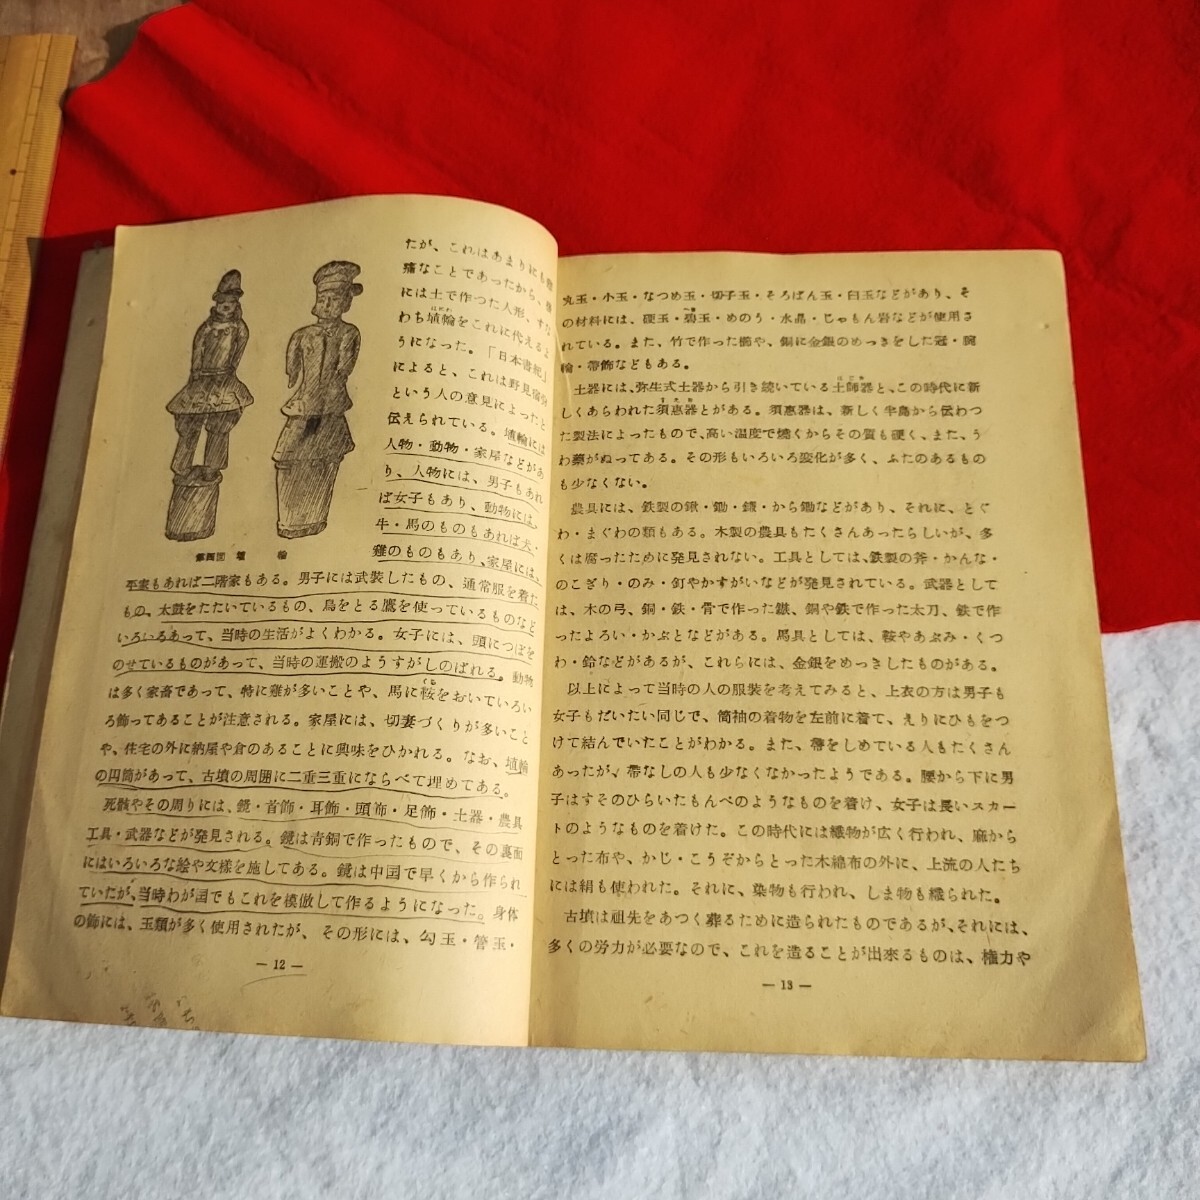 たが、これはあまりにも
痛なことであったから、
には土で作つた人形、すな
はにわ
わち埴輪をこれに代えるよ
うになった。「日本書紀」
によると、これは野見宿
という人の意見によったと
伝えられている。埴輪には
人物・動物・家屋などがあ
り、人物には、男子もあれ
ば女子もあり、動物には、
牛・馬のものもあれば犬、
雞のものもあり、家屋には、
第四図 埴 輪
平家もあれば二階家もある。男子には武装したもの、通常服を着た
もの、太鼓をたたいているもの、鳥をとる鷹を使っているものなど
いろいろあって、当時の生活がよくわかる。女子には、頭につぼを
のせているものがあって、当時の運搬のようすがしのばれる。動物
くら
は多く家畜であって、特に雞が多いことや、馬に鞍をおいていろい
ろ飾ってあることが注意される。家屋には、切妻づくりが多いこと
や、住宅の外に納屋や倉のあることに興味をひかれる。なお、埴輪
の円筒があって、古墳の周囲に二重三重にならべて埋めてある。
死骸やその周りには、鏡・首飾・耳飾・頭飾・足飾・土器・農具
工具・武器などが発見される。鏡は青銅で作ったもので、その裏面
にはいろいろな絵や文様を施してある。鏡は中国で早くから作られ
ていたが、当時わが国でもこれを模倣して作るようになった。身体
の飾には、玉類が多く使用されたが、その形には、勾玉・管玉・
— 12 —
丸玉・小玉・なつめ玉・切子玉・そろばん玉・臼玉などがあり、そ
の材料には、硬玉・碧玉・めのう・水晶・じゃもん岩などが使用さ
れている。また、竹で作った櫛や、銅に金銀のめっきをした冠・腕
輪・帯飾などもある。
はじき
土器には、弥生式土器から引き続いている土師器と、この時代に新
すえき
しくあらわれた須恵器とがある。須恵器は、新しく半島から伝わつ
た製法によったもので、高い温度で焼くからその質も硬く、また、う
わ薬がぬってある。その形もいろいろ変化が多く、ふたのあるもの
も少なくない。
農具には、鉄製の鍬・鋤・鎌・から鋤などがあり、それに、とぐ
わ・まぐわの類もある。木製の農具もたくさんあったらしいが、多
くは腐ったために発見されない。工具としては、鉄製の斧・かんな・
のこぎり・のみ・釘やかすがいなどが発見されている。武器として
は、木の弓、銅・鉄・骨で作った鏃、銅や鉄で作った太刀、鉄で作
ったよろい・かぶとなどがある。馬具としては、鞍やあぶみ・くつ
わ・鈴などがあるが、これらには、金銀をめっきしたものがある。
以上によって当時の人の服装を考えてみると、上衣の方は男子も
女子もだいたい同じで、筒袖の着物を左前に着て、えりにひもをつ
けて結んでいたことがわかる。また、帯をしめている人もたくさん
あったが、帯なしの人も少なくなかったようである。腰から下に男
子はすそのひらいたもんぺのようなものを着け、女子は長いスカー
トのようなものを着けた。この時代には織物が広く行われ、麻から
とった布や、かじ・こうぞからとった木綿布の外に、上流の人たち
には絹も使われた。それに、染物も行われ、しま物も織られた。
古墳は祖先をあつく葬るために造られたものであるが、それには、
多くの労力が必要なので、これを造ることが出來るものは、権力や
— 13 —